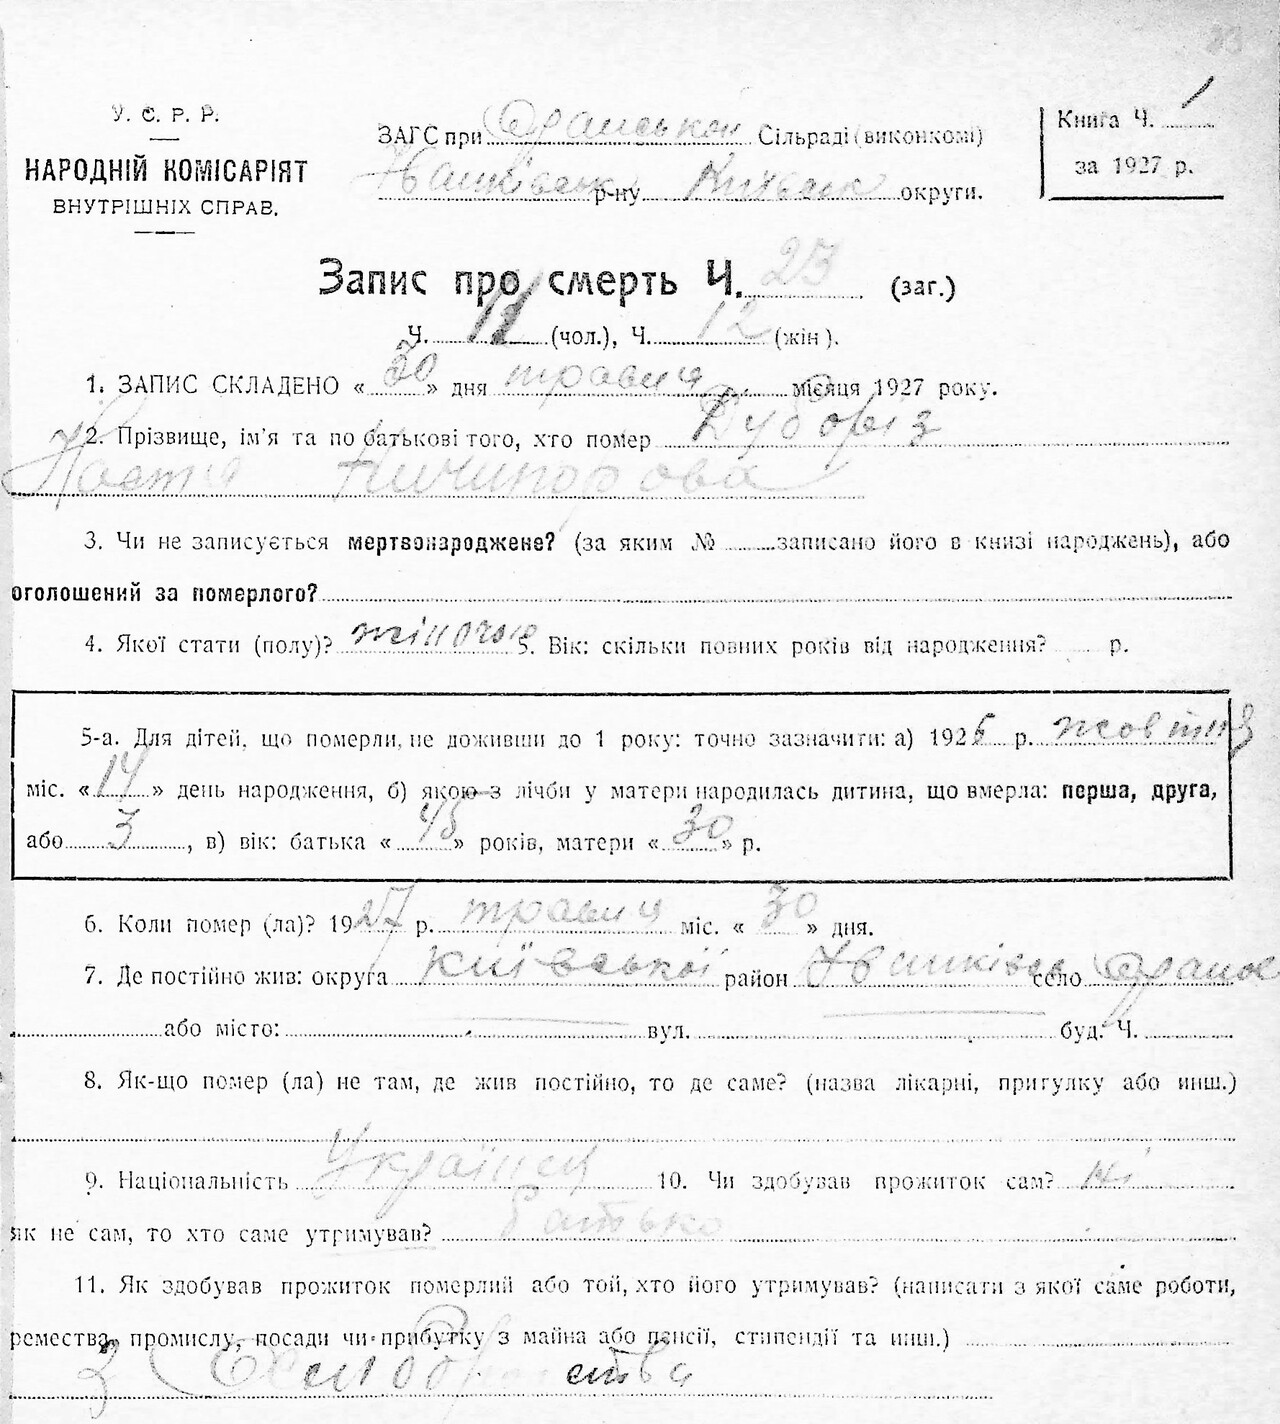 У. С. Р. Р.
НАРОДНІЙ КОМІСАРІЯТ
ВНУТРІШНІХ СПРАВ.
ЗАГС при Оранській Сільраді (виконкомі)
р-ну Київськ округи.
Книга Ч. 1
за 1927 р.
Запис про смерть Ч. 23 (заг.)
Ч. 11 (чол.), Ч. 12 (жін).
1. ЗАПИС СКЛАДЕНО « 30 » дня травня місяця 1927 року.
2. Прізвище, ім'я та по батькові того, хто помер Дуборіз
Настя Ничипорова
3. Чи не записується мертвонароджене? (за яким № записано його в книзі народжень), або
оголошений за померлого?
4. Якої стати (полу)? жіночої 5. Вік: скільки повних років від народження? р.
5-а. Для дітей, що померли, не доживши до 1 року: точно зазначити: а) 1926 р. жовтня
міс. « 14 » день народження, б) якою з лічби у матери народилась дитина, що вмерла: перша, друга,
або 3, в) вік: батька « 45 » років, матери « 30 » р.
6. Коли помер (ла)? 1927 р. травня міс. « 30 » дня.
7. Де постійно жив: округа Київської район село
або місто: вул. буд. Ч.
8. Як-що помер (ла) не там, де жив постійно, то де саме? (назва лікарні, притулку або инш.)
9. Національність Українка 10. Чи здобував прожиток сам? ні
як не сам, то хто саме утримував? батько
11. Як здобував прожиток померлий або той, хто його утримував? (написати з якої саме роботи,
ремества, промислу, посади чи прибутку з майна або пенсії, стипендії та инш.)
З